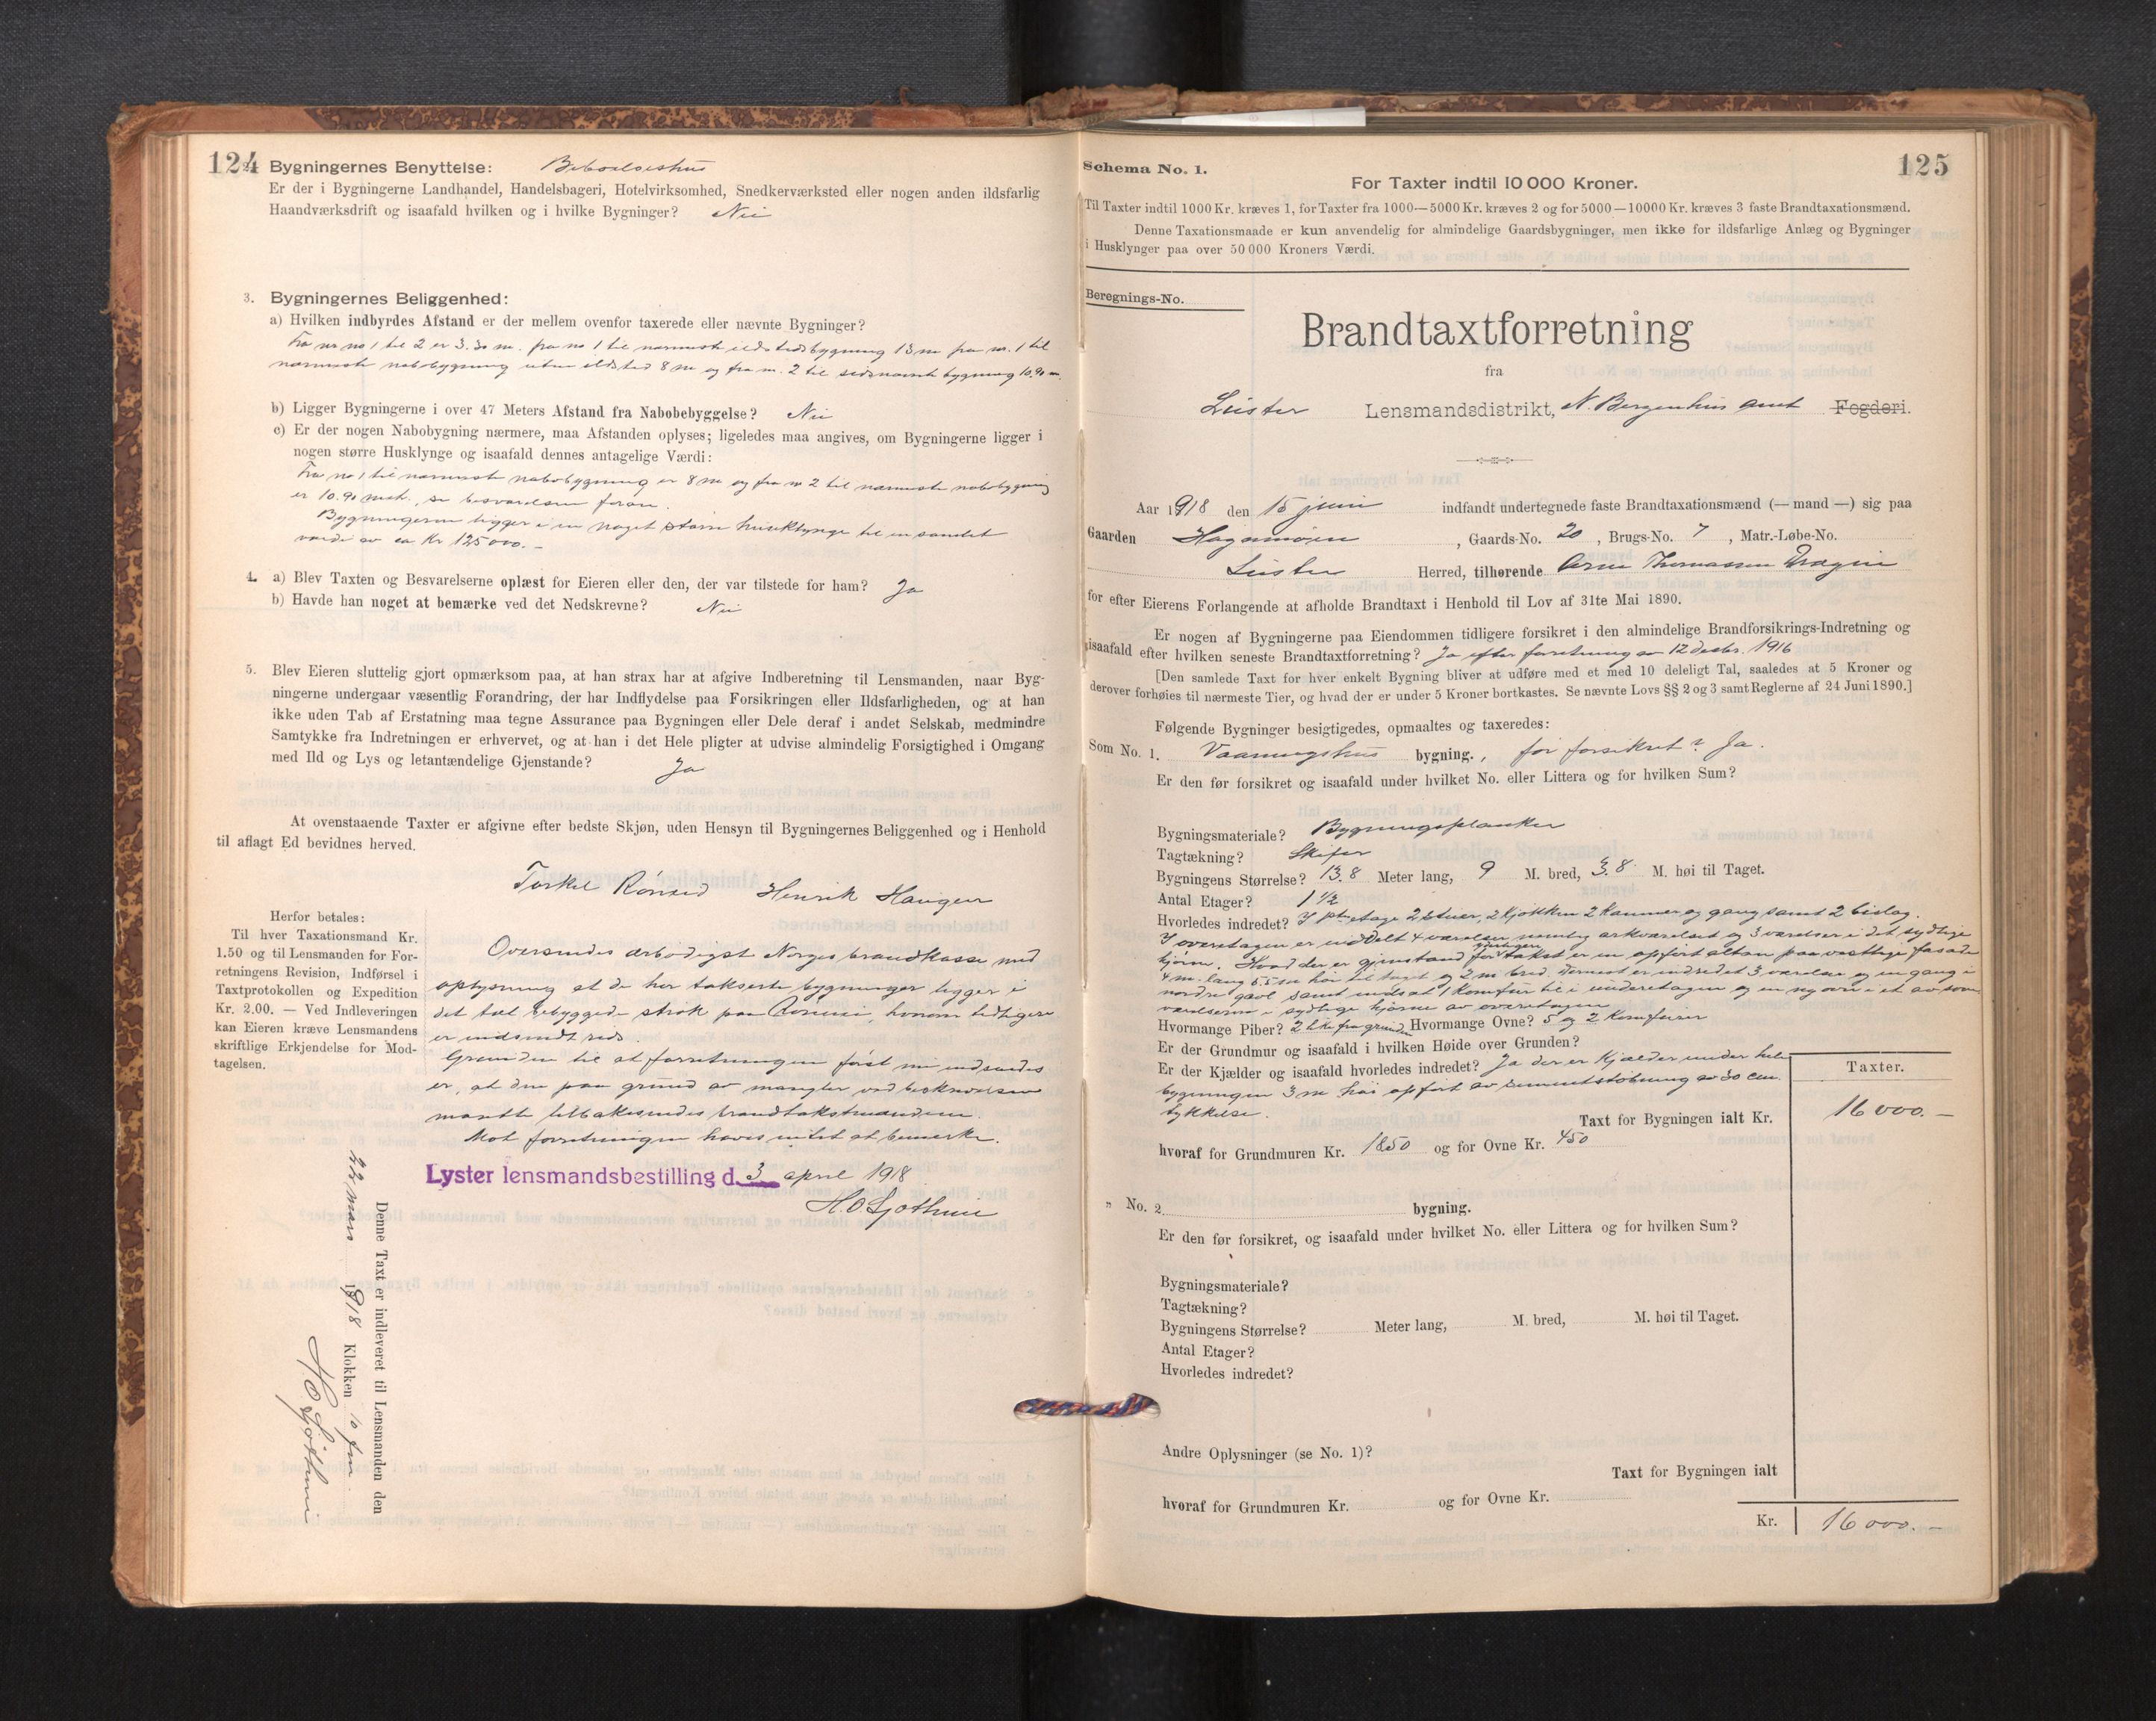 124
2. Bygningernes Benyttelse: Beboelseshus
Er der i Bygningerne Landhandel, Handelsbageri, Hotelvirksomhed, Snedkerværksted eller nogen anden ildsfarlig
Haandværksdrift og isaafald hvilken og i hvilke Bygninger? Nei
3. Bygningernes Beliggenhed:
a) Hvilken indbyrdes Afstand er der mellem ovenfor taxerede eller nævnte Bygninger?
Fra nr no 1 til 2 er 3.30 m. fra no 1 til nærmeste ildstedsbygning 13 m fra nr. 1 til
nærmeste nabobygning uten ildsted 8 m og fra nr. 2 til bygning 10.90 m.
b) Ligger Bygningerne i over 47 Meters Afstand fra Nabobebyggelse? Nei
c) Er der nogen Nabobygning nærmere, maa Afstanden oplyses; ligeledes maa angives, om Bygningerne ligger i
nogen større Husklynge og isaafald dennes antagelige Værdi:
Fra no 1 til nærmeste nabobygning er 8 m og fra nr 2 til nærmeste nabobygning
er 10.90 met., se besvarelsen foran.
Bygningerne ligger i en noget større husklynge til en samlet
værdi av ca Kr 125000.-
4. a) Blev Taxten og Besvarelserne oplæst for Eieren eller den, der var tilstede for ham? Ja
b) Havde han noget at bemærke ved det Nedskrevne? Nei
5. Blev Eieren sluttelig gjort opmærksom paa, at han strax har at afgive Indberetning til Lensmanden, naar Byg-
ningerne undergaar væsentlig Forandring, der har Indflydelse paa Forsikringen eller Ildsfarligheden, og at han
ikke uden Tab af Erstatning maa tegne Assurance paa Bygningen eller Dele deraf i andet Selskab, medmindre
Samtykke fra Indretningen er erhvervet, og at han i det Hele pligter at udvise almindelig Forsigtighed i Omgang
med Ild og Lys og letantændelige Gjenstande? Ja
At ovenstaaende Taxter er afgivne efter bedste Skjøn, uden Hensyn til Bygningernes Beliggenhed og i Henhold
til aflagt Ed bevidnes herved.
Torkel Rönnei Henrik Haugen
Herfor betales:
Til hver Taxationsmand Kr.
1.50 og til Lensmanden for For-
retningens Revision, Indførsel i
Taxtprotokollen og Expedition
Kr. 2.00. — Ved Indleveringen
kan Eieren kræve Lensmandens
skriftlige Erkjendelse for Mod-
tagelsen.
Oversendes ærbödigst Norges brandkasse med
oplysning at de her takserte bygninger ligger i
det tæt bebyggede strök paa Rönnei, hvorom tidligere
er indsendt
Grunden til at forretningen först nu indsendes
er, at den paa grund av mangler ved beskrivelsen
maatte tilbakesendes brandtakstmændene.
Mot forretningen haves intet at bemerke.
Lyster lensmandsbestilling d. 3 april 1918
H.O. Sjøthun
Denne Taxt er indleveret til Lensmanden den
22 mars 1918 Klokken 10 fm.
H.O. Sjøthun
Schema No. 1. 125
For Taxter indtil 10 000 Kroner.
Til Taxter indtil 1000 Kr. kræves 1, for Taxter fra 1000—5000 Kr. kræves 2 og for 5000—10000 Kr. kræves 3 faste Brandtaxationsmænd.
Denne Taxationsmaade er kun anvendelig for almindelige Gaardsbygninger, men ikke for ildsfarlige Anlæg og Bygninger
i Husklynger paa over 50 000 Kroners Værdi.
Beregnings-No.
Brandtaxtforretning
fra
Luster Lensmandsdistrikt, N. Bergenhus amt Fogderi.
Aar 1918 den 15 juni indfandt undertegnede faste Brandtaxationsmænd (— mand —) sig paa
Gaarden Hagamoen , Gaards-No. 20 , Brugs-No. 7 , Matr.-Løbe-No.
Luster Herred, tilhørende Arne Thomassen Drægni
for efter Eierens Forlangende at afholde Brandtaxt i Henhold til Lov af 31te Mai 1890.
Er nogen af Bygningerne paa Eiendommen tidligere forsikret i den almindelige Brandforsikrings-Indretning og
isaafald efter hvilken seneste Brandtaxtforretning? Ja efter forretning av 12 decbr. 1916
[Den samlede Taxt for hver enkelt Bygning bliver at udføre med et med 10 deleligt Tal, saaledes at 5 Kroner og
derover forhøies til nærmeste Tier, og hvad der er under 5 Kroner bortkastes. Se nævnte Lovs §§ 2 og 3 samt Reglerne af 24 Juni 1890.]
Følgende Bygninger besigtigedes, opmaaltes og taxeredes:
Som No. 1. Vaaningshus bygning., før forsikret? Ja.
Er den før forsikret og isaafald under hvilket No. eller Littera og for hvilken Sum?
Bygningsmateriale? Bygningsplanker
Tagtækning? Skifer
Bygningens Størrelse? 13.8 Meter lang, 9 M. bred, 3.8 M. høi til Taget.
Antal Etager? 1 ½
Hvorledes indredet? I 1ste etage 2 stuer, 2 kjökken 2 kammer og gang samt 2 bislag.
I overetagen er inddelt 4 værelser nemlig arkværelset og 3 værelser i det sydlige
hjörne. Hvad der er gjenstand for takst er en opfört altan paa vestlige fasade
4 m. lang 5.5 m höi til taget og 2 m bred. Dernest er indredet 3 værelser og en gang i
nordre gavl samt indsat 1 komfur til i underetagen og en ny ovn i et av sove
værelserne i sydlige hjörne av overetagen
Hvormange Piber? 2 fra grunden Hvormange Ovne? 5 og 2 Komfuirer
Er der Grundmur og isaafald i hvilken Høide over Grunden?
Er der Kjælder og isaafald hvorledes indredet? Ja der er Kjælder under hele
bygningen 3 m höi opfört av sementstöbning av 30 cm.
tykkelse.
Taxter.
Taxt for Bygningen ialt Kr. 16000.-
hvoraf for Grundmuren Kr. 1850 og for Ovne Kr. 450
„ No. 2. bygning.
Er den før forsikret, og isaafald under hvilket No. eller Littera og for hvilken Sum?
Bygningsmateriale?
Tagtækning?
Bygningens Størrelse? Meter lang, M. bred, M. høi til Taget.
Antal Etager?
Hvorledes indredet?
Andre Oplysninger (se No. 1)?
Taxt for Bygningen ialt
hvoraf for Grundmuren Kr. og for Ovne Kr.
Kr. 16000.-